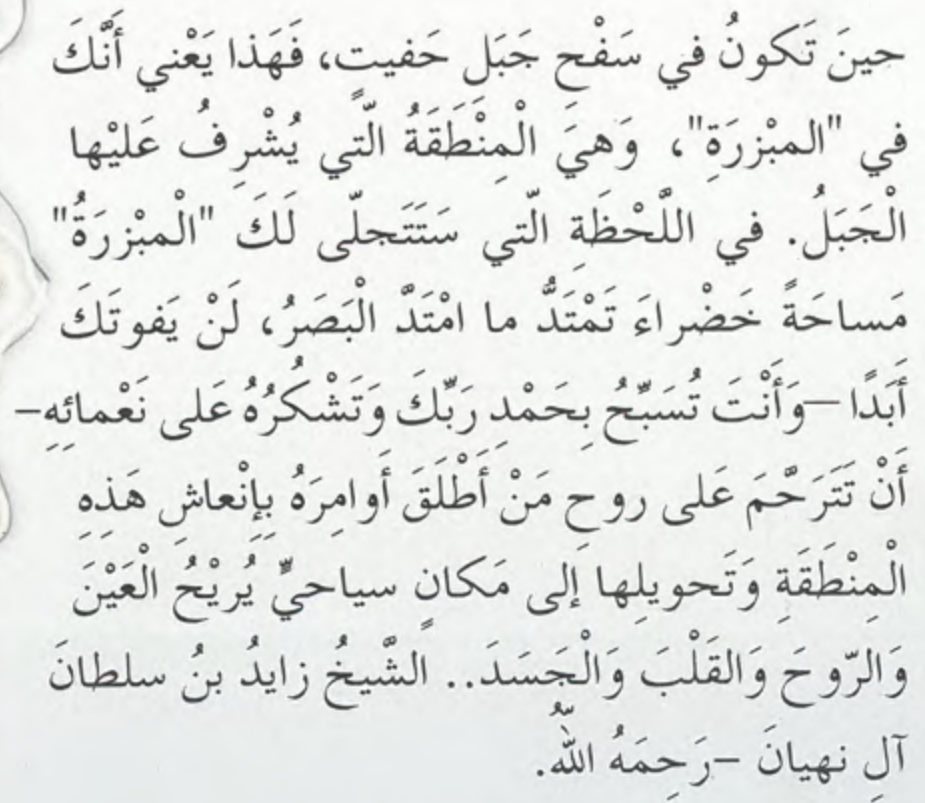 حينَ تَكونُ في سَفْحِ جَبَلِ حَفيتٍ، فَهَذا يَعْني أَنَّكَ
في "المبْزرَةِ"، وَهيَ الْمِنْطَقَةُ الّتي يُشْرِفُ عَليْها
الْجَبَلُ. في اللَّحْظَةِ الّتي سَتَتَجلّى لَكَ "الْمبْزرَةُ"
مَساحَةً خَضْراءَ تَمْتَدُّ ما امْتَدَّ الْبَصَرُ، لَنْ يَفوتَكَ
أَبَدًا –وَأَنْتَ تُسَبِّحُ بِحَمْدِ رَبِّكَ وَتَشْكُرُهُ عَلى نَعْمائِهِ–
أَنْ تَتَرَحَّمَ عَلى روحِ مَنْ أَطْلَقَ أَوامِرَهُ بِإِنْعاشِ هَذِهِ
الْمِنْطَقَةِ وَتَحويلِها إلى مَكانٍ سياحيٍّ يُريْحُ الْعَيْنَ
وَالرّوحَ وَالقَلْبَ وَالْجَسَدَ.. الشّيخُ زايدُ بنُ سلطانَ
آلِ نهيانَ –رَحِمَهُ اللهُ.